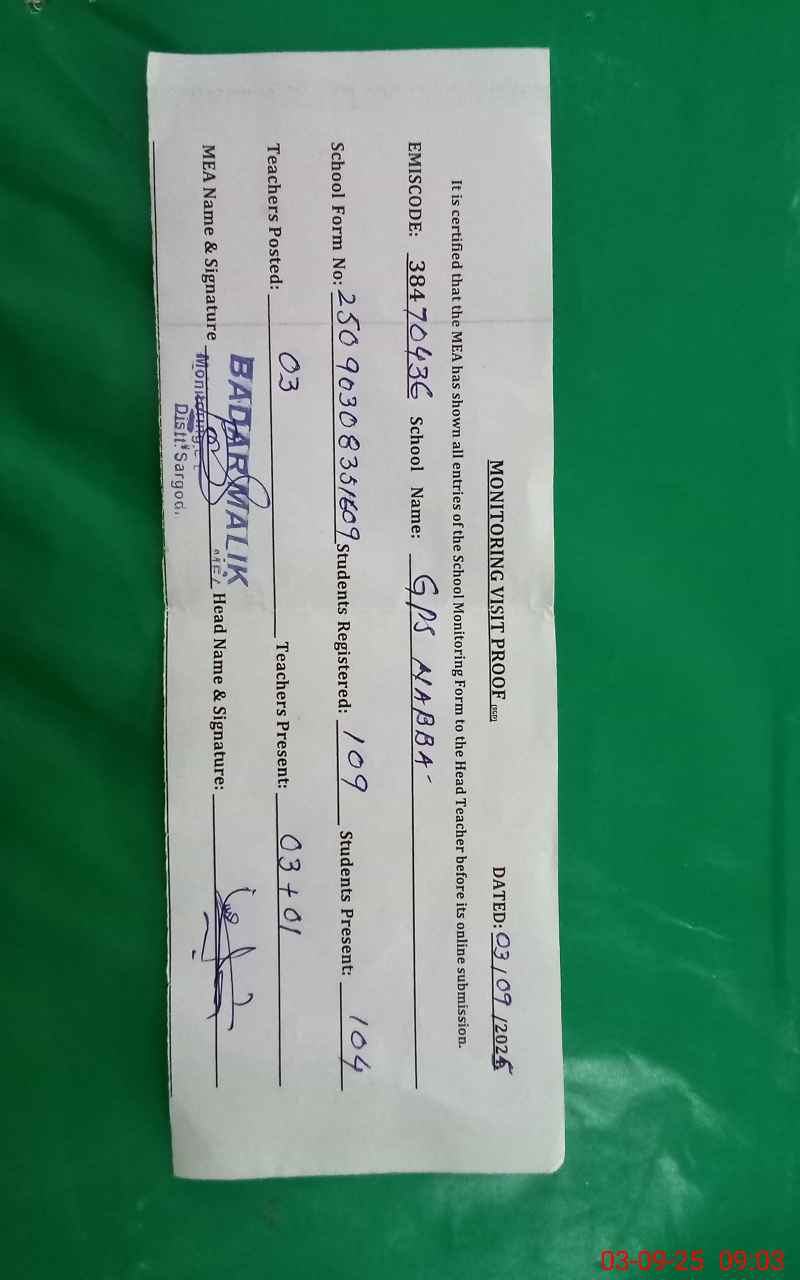 MONITORING VISIT PROOF (PGP)
DATED: 03/09/2025
It is certified that the MEA has shown all entries of the School Monitoring Form to the Head Teacher before its online submission.
EMISCODE: 38470436 School Name: GPS NABBA
School Form No: 250903083351609 Students Registered: 109 Students Present: 104
Teachers Posted: 03 Teachers Present: 03+01
MEA Name & Signature Head Name & Signature:
BADAR MALIK
Distt: Sargod
03-09-25 09:03